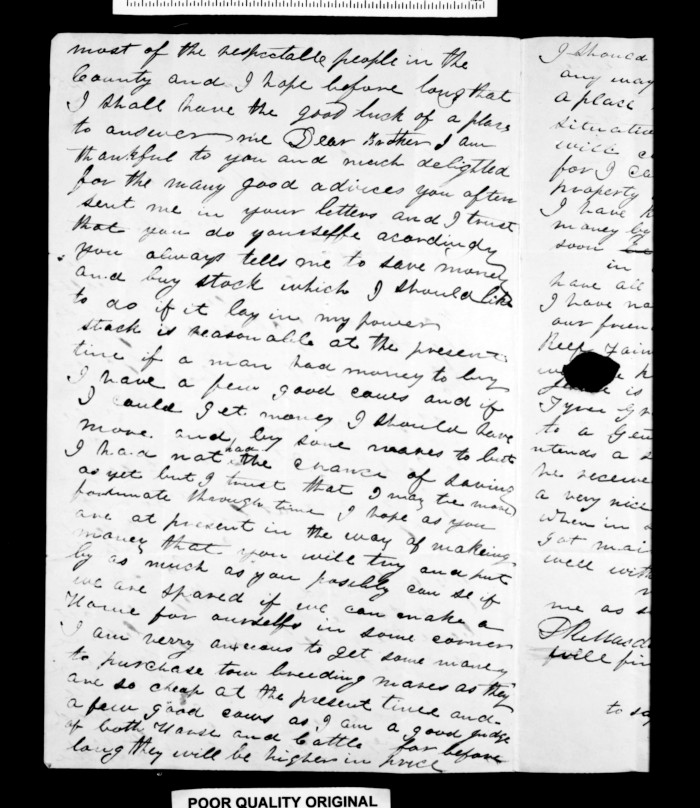 most of the respectable people in the
County and I hope before long that
I shall have the good luck of a place
to answer me Dear Brother I am
thankful to you and much delighted
for the many good advices you often
sent me in your letters and I trust
that you do yourselfe acordindy
you always tells me to save money
and buy stock which I should like
to do if it lay in my power
stock is reasonable at the present
time if a man had money to buy
I have a few good cows and if
I could get money I should have
more and buy some mares to but
I had not had the chance of saving
as yet but I trust that I may be more
fortunate through time I hope as you
are at present in the way of making
money that you will try and put
by as much as you posibly can se if
we are spared if we can make a
Home for ourselfs in some corner
I am verry anxcious to get some money
to purchase tow breeding mares as they
are so cheap at the present time and
a few good cows as I am a good judge
of both Horse and Cattle for before
long they will be higher in price
I should
any way
a place
situatio
will
for I ca
property
I have
money by
soon
in
have all
I have no
our frien
Keep
is
to a
he receive
a very nice
when in
got mai
well with
me as
will fin
to say
POOR QUALITY ORIGINAL